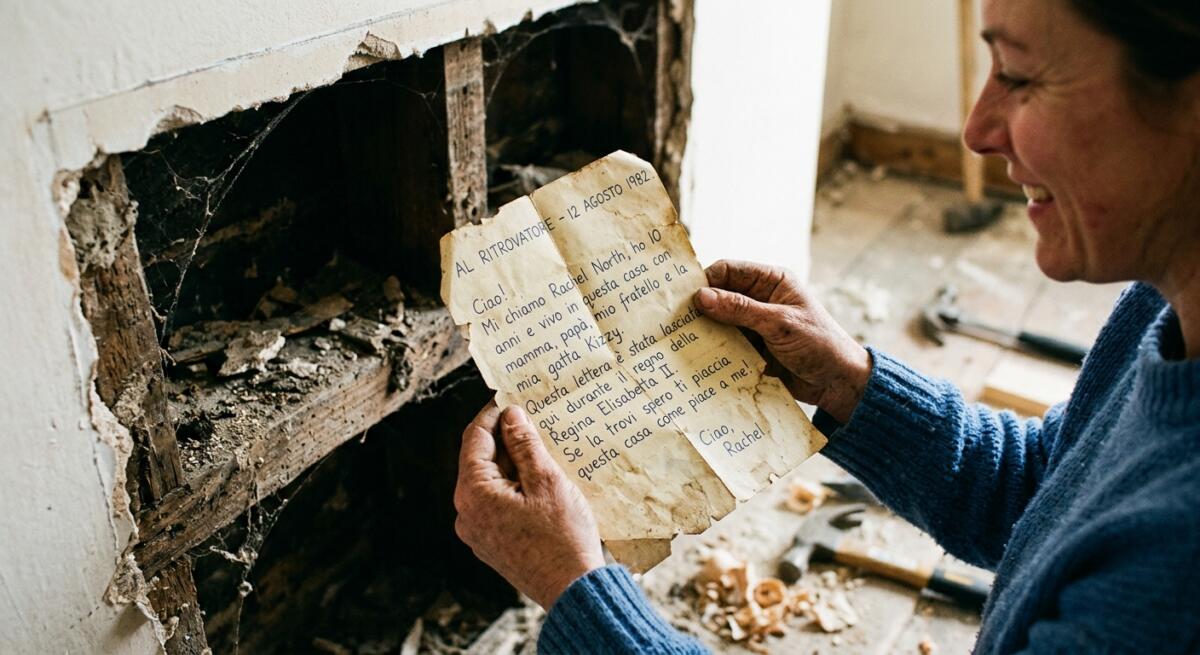 AL RITROVATORE – 12 AGOSTO 1982.
Ciao!
Mi chiamo Rachel North, ho 10
anni e vivo in questa casa con
mamma, papà, mio fratello e la
mia gatta Kizzy.
Questa lettera è stata lasciata
qui durante il regno della
Regina Elisabetta II.
Se la trovi spero ti piaccia
questa casa come piace a me!
Ciao,
Rachel